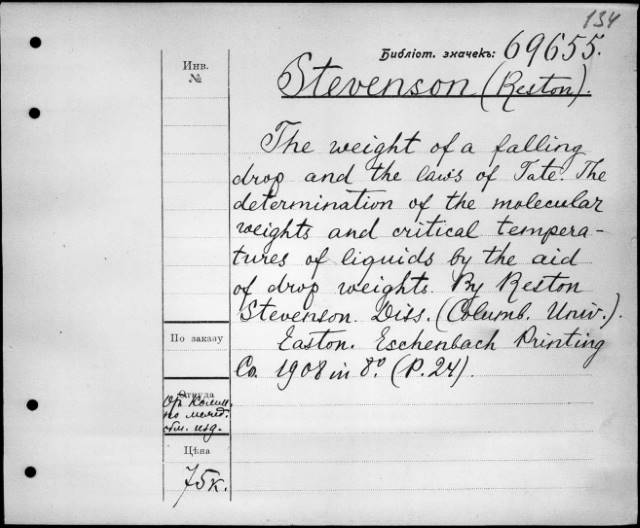 134
Библіот. значекъ: 69655.
Инв.
№
Stevenson (Reston).
The weight of a falling
drop and the laws of Tate. The
determination of the molecular
weights and critical tempera-
tures of liquids by the aid
of drop weights. By Reston
Stevenson. Diss. (Columb. Univ.).
Easton. Eschenbach Printing
Co. 1908 in 8º. (P. 24).
По заказу
Откуда
по межд.
обм. изд.
Цѣна
75к.